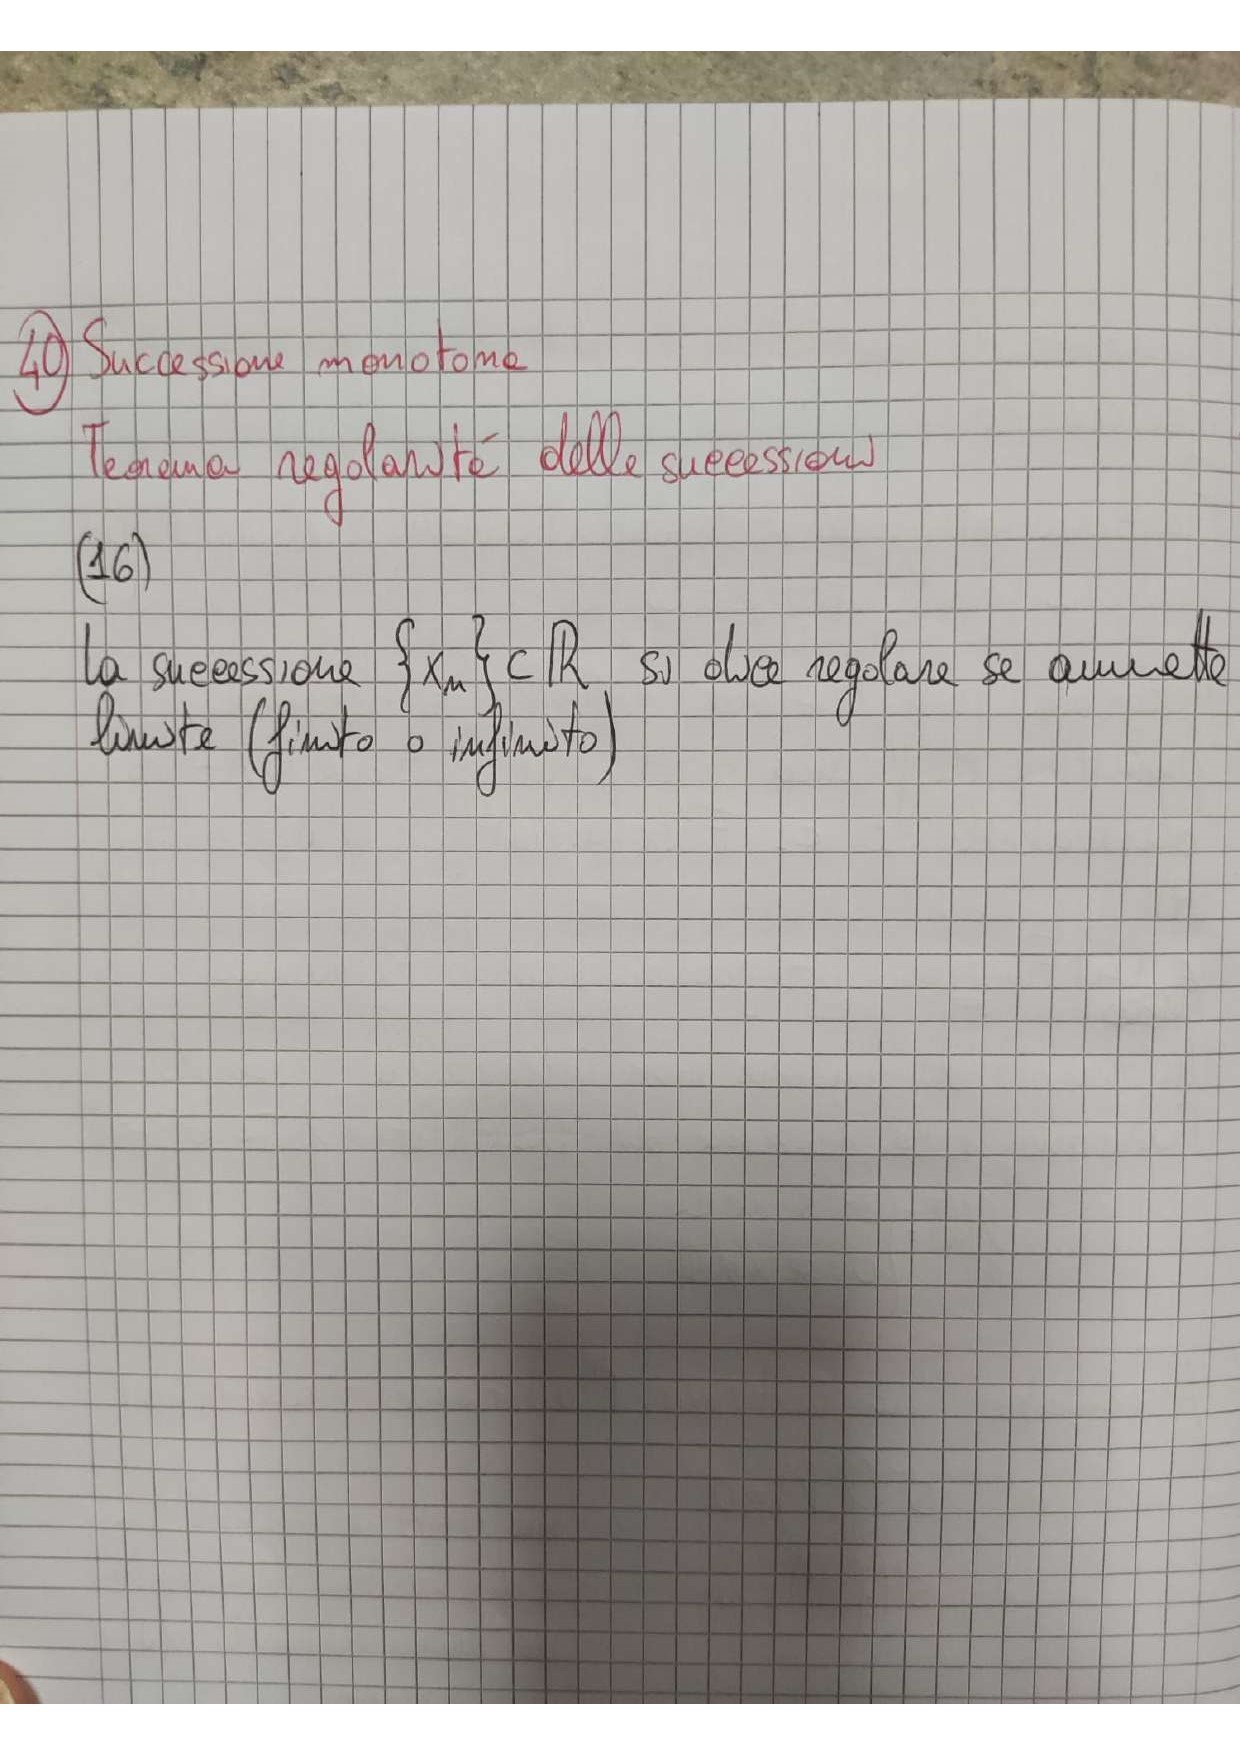 40) Successione monotona
Teorema regolarità delle successioni
(16)
La successione {xn} ⊂ ℝ si dice regolare se ammette
limite (finito o infinito)